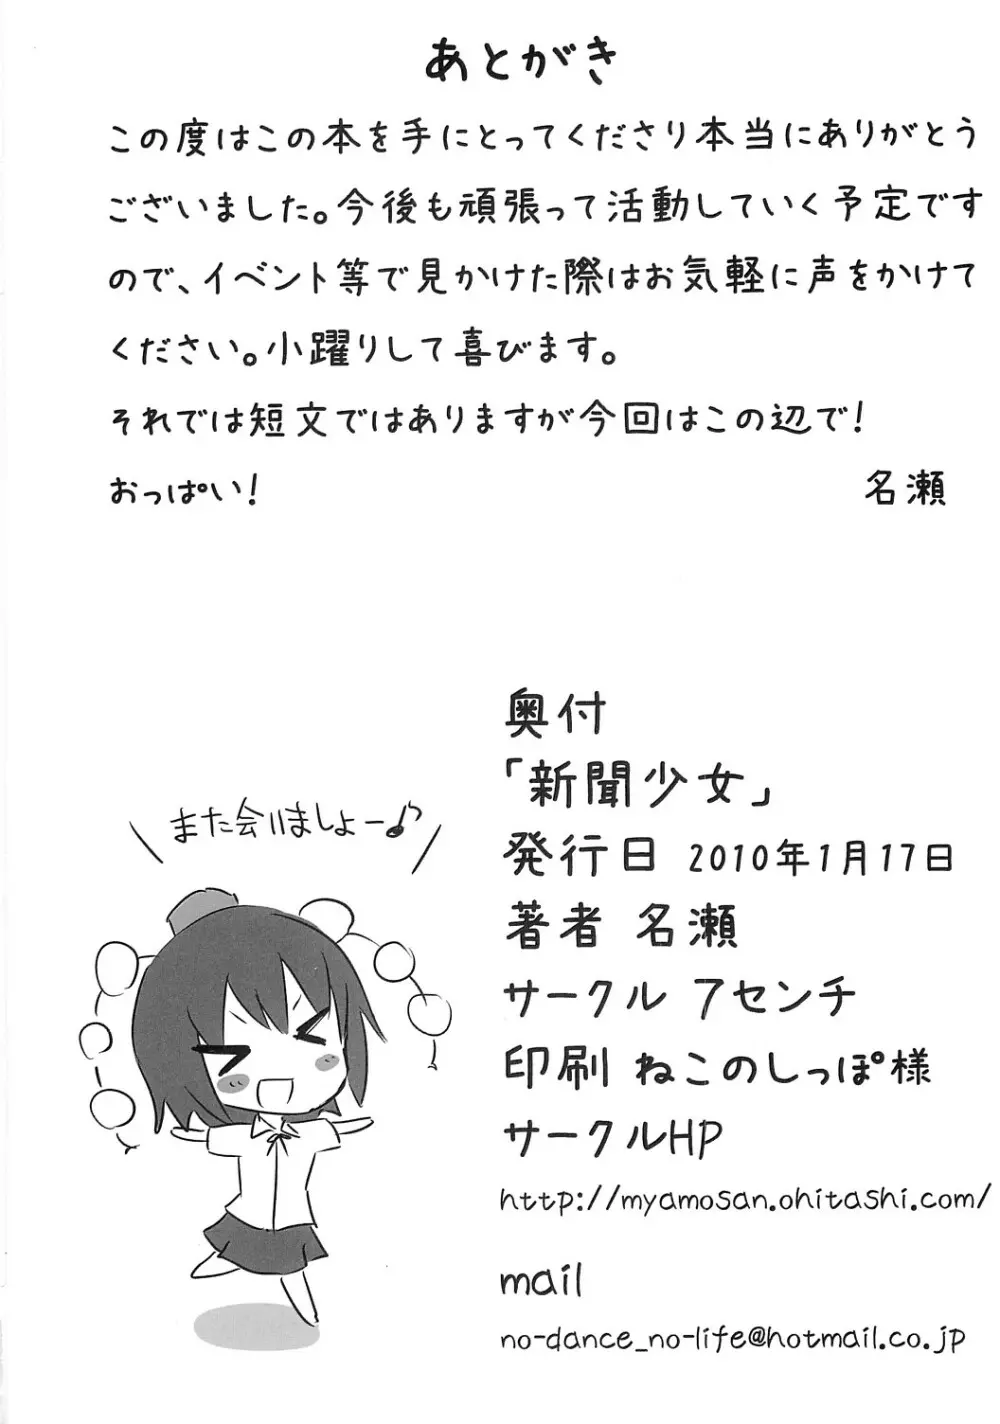 あとがき
この度はこの本を手にとってくださり本当にありがとう
ございました。今後も頑張って活動していく予定です
ので、イベント等で見かけた際はお気軽に声をかけて
ください。小躍りして喜びます。
それでは短文ではありますが今回はこの辺で!
おっぱい! 名瀬
また会いましょー♪
奥付
「新聞少女」
発行日 2010年1月17日
著者 名瀬
サークル 7センチ
印刷 ねこのしっぽ様
サークルHP
http://myamosan.ohitashi.com/
mail
no-dance_no-life@hotmail.co.jp